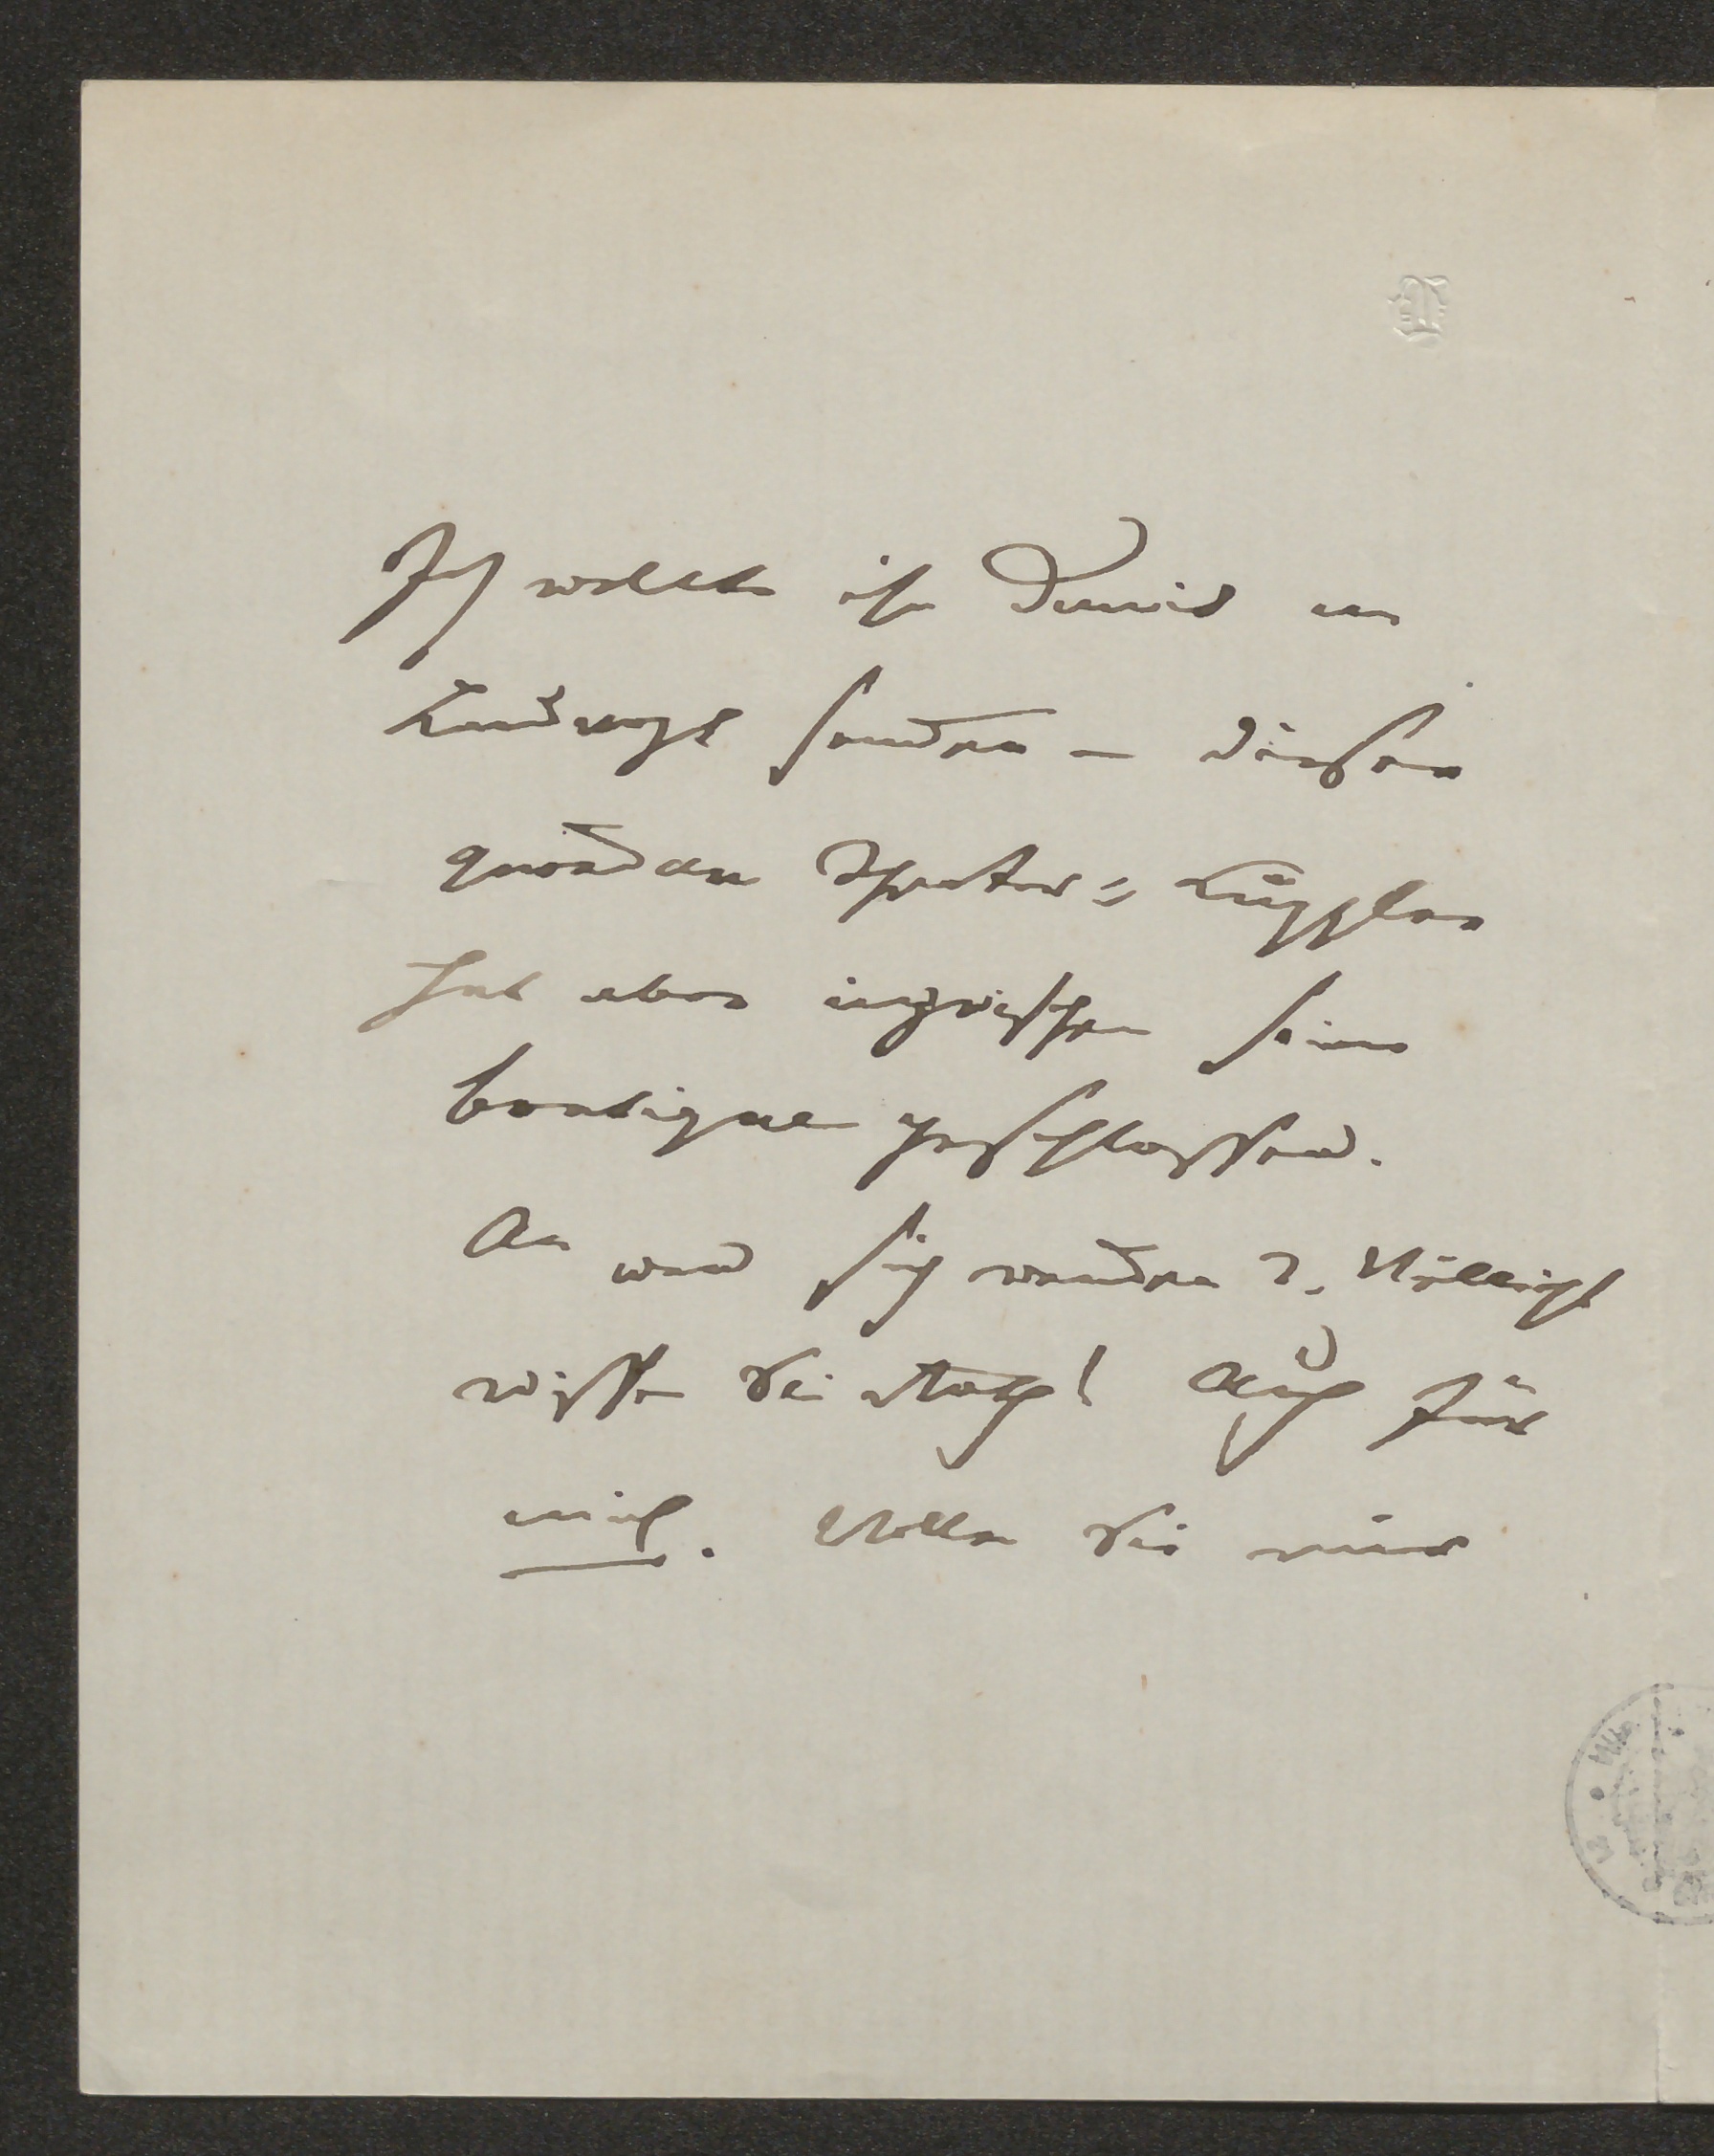 Ich wollte ihn damit an
Landvogt senden – dieser
quondam Theater-Kuppler
hat aber inzwischen seine
boutique geschlossen.
An wen sich wenden? Vielleicht
wissen Sie Rath! Auch für
mich. Wollen Sie mir